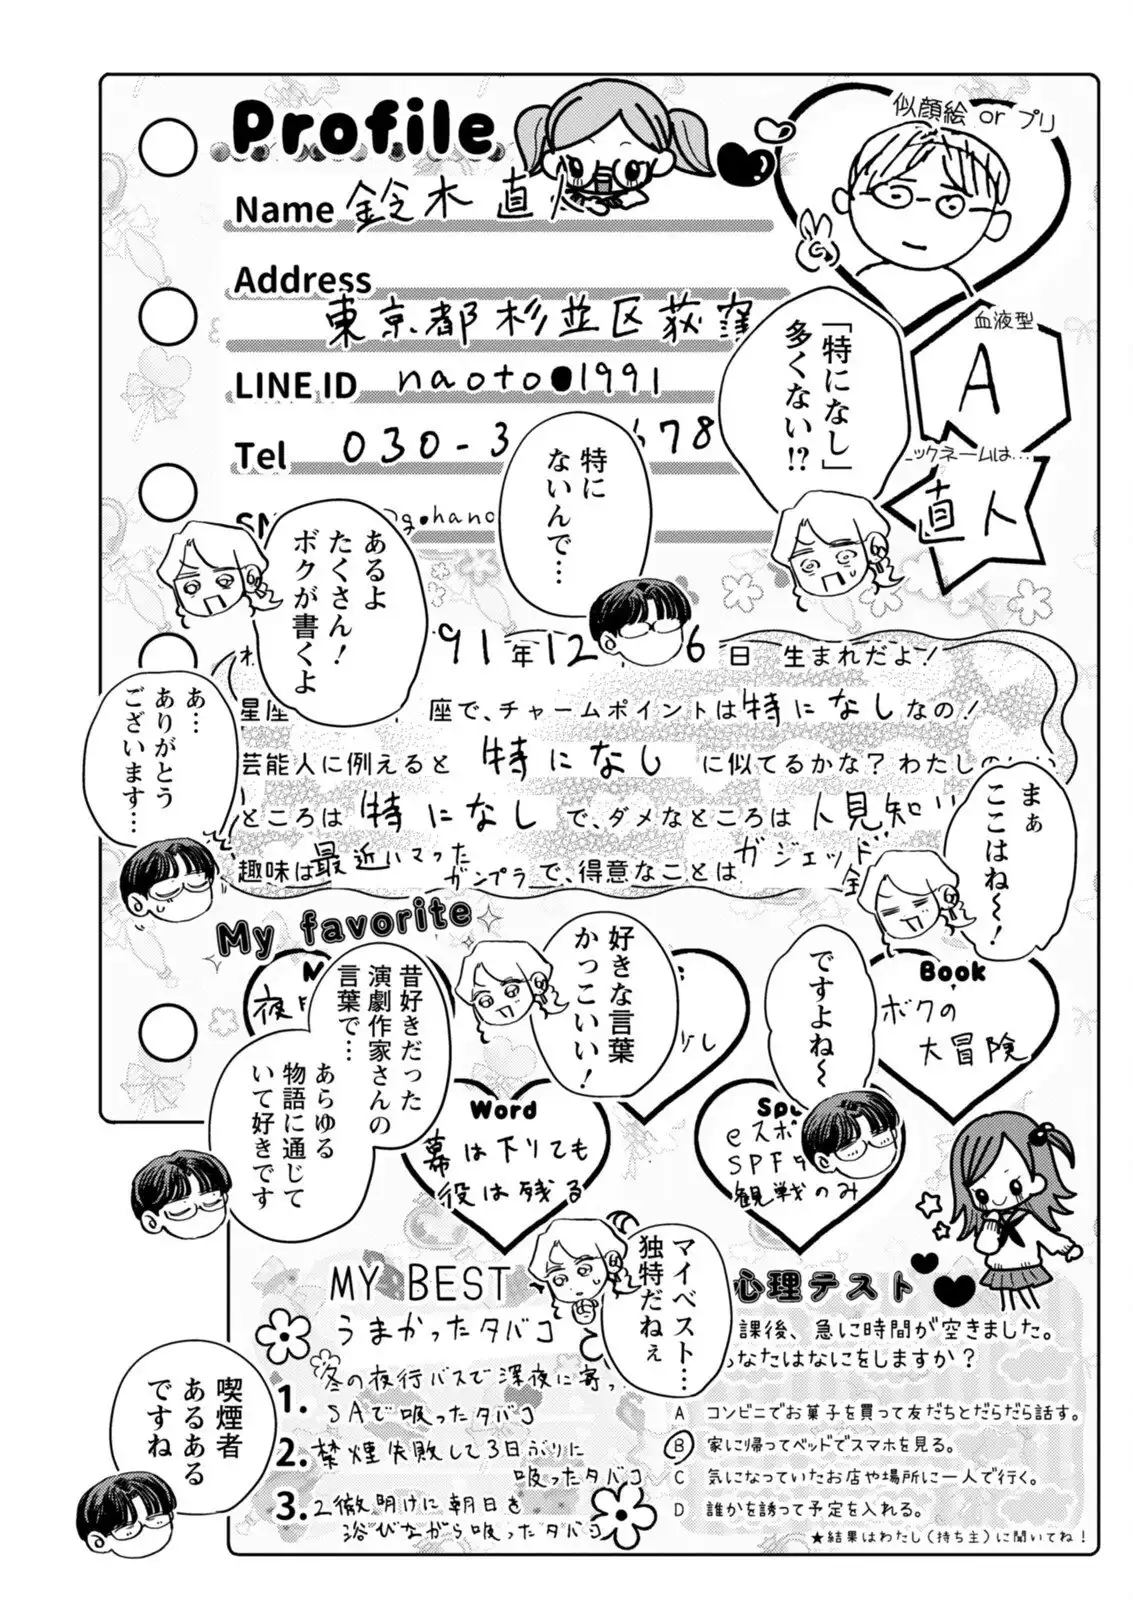 Profile
似顔絵 or プリ
Name 鈴木 直人
Address
東京都杉並区荻窪
血液型
A
LINE ID naoto●1991
Tel 030-3 678
ニックネームは…
直人
「特になし」
多くない!?
特に
ないんで…
あるよ
たくさん!
ボクが書くよ
91年12 6日 生まれだよ!
あ…
ありがとう
ございます…
星座 座で、チャームポイントは特になしなの!
芸能人に例えると 特になし に似てるかな? わたしの いい
ところは特になしで、ダメなところは人見知
趣味は最近ハマったガンプラで、得意なことはガジェット 全
まぁ
ここはね〜!
ですよね〜
My favorite
好きな言葉
かっこいい!
昔好きだった
演劇作家さんの
言葉で…
あらゆる
物語に通じて
いて好きです
Book
ボクの
大冒険
Word
幕は下りても
役は残る
Spo
eスポ
SPF
観戦のみ
マイベスト…
独特だねぇ
MY BEST
うまかったタバコ
1. 冬の夜行バスで深夜に寄っ
SAで吸ったタバコ
2. 禁煙失敗して3日ぶりに
吸ったタバコ
3. 2徹明けに朝日を
浴びながら吸ったタバコ
喫煙者
あるある
ですね
心理テスト
課後、急に時間が空きました。
あなたはなにをしますか?
A コンビニでお菓子を買って友だちとだらだら話す。
B 家に帰ってベッドでスマホを見る。
C 気になっていたお店や場所に一人で行く。
D 誰かを誘って予定を入れる。
★結果はわたし(持ち主)に聞いてね!